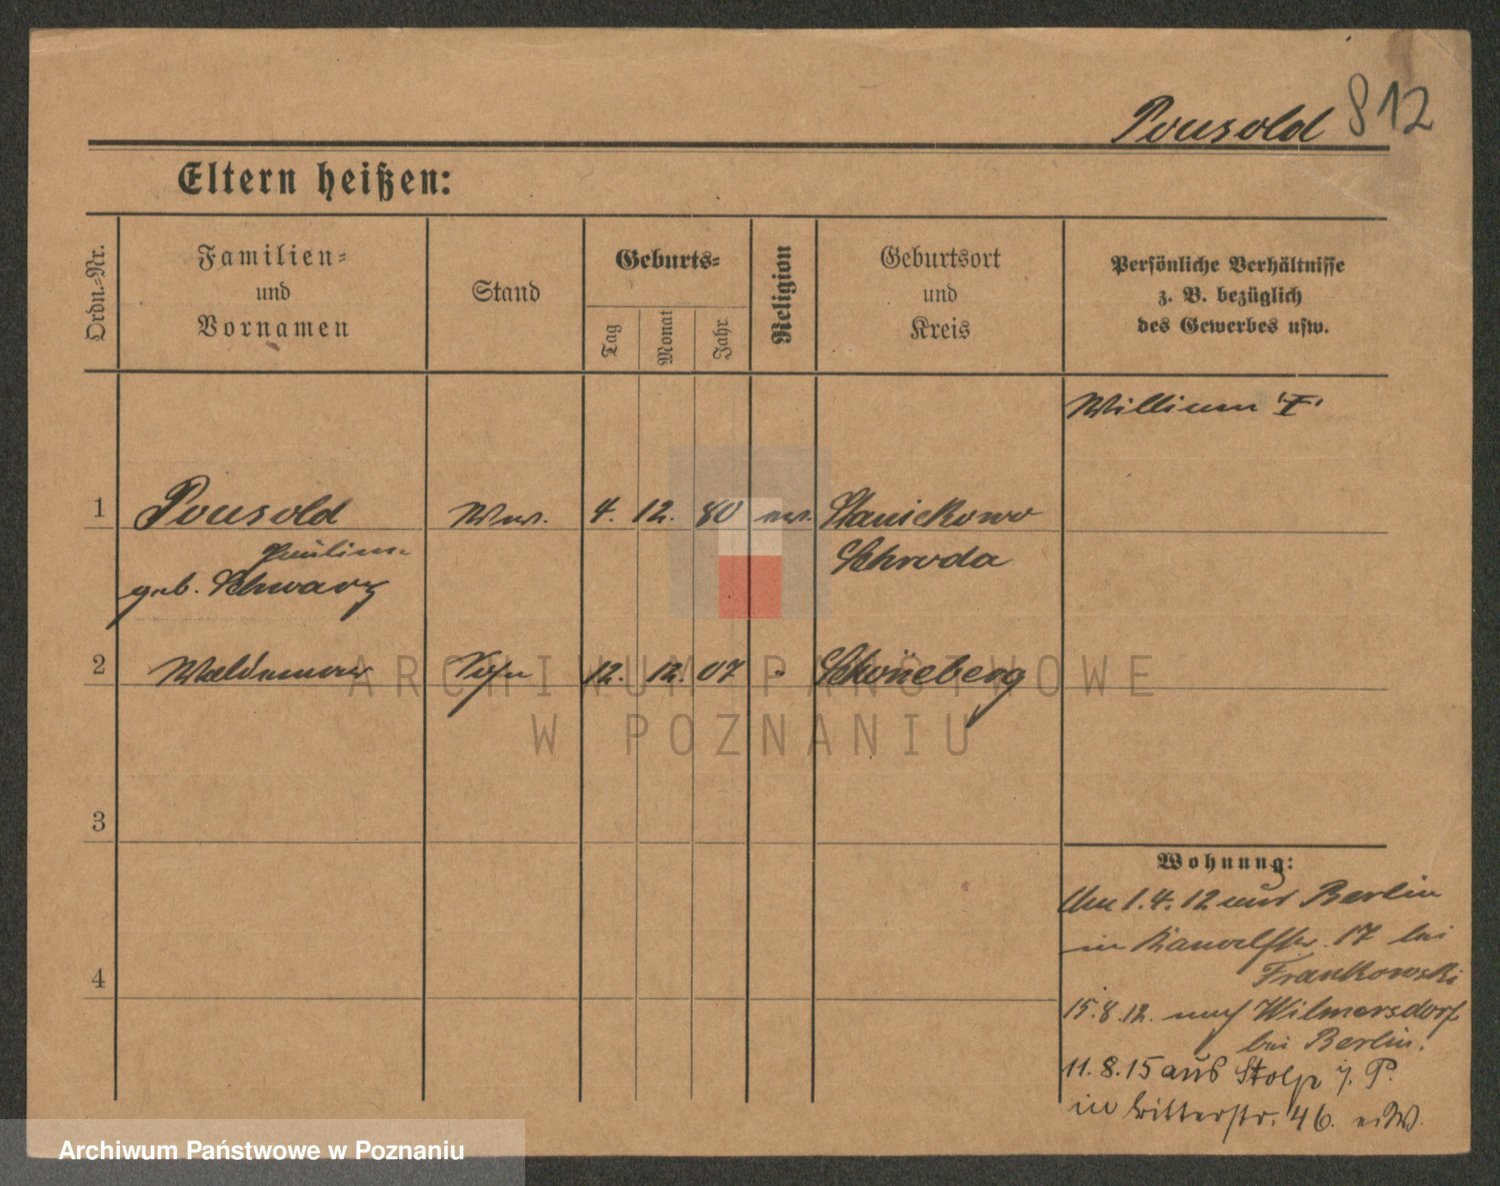 Pousold 812
Eltern heißen:
Ordn.-Nr.
Familien-
und
Vornamen
Stand
Geburts-
Tag
Monat
Jahr
Religion
Geburtsort
und
Kreis
Persönliche Verhältnisse
z. B. bezüglich
des Gewerbes usw.
William
1 Pousold Ww. 4. 12. 80 ev. Stanickowo
Paulin Schroda
geb. Schwarz
2 Waldemar Sohn 12. 12. 07 " Schöneberg
ARCHIWUM PAŃSTWOWE
W POZNANIU
3
Wohnung:
Am 1.4.12 aus Berlin
in 17 bei
Frankowski
4
15.8.12. nach Wilmersdorf
bei Berlin.
11.8.15 aus Stolp i. P.
in Ritterstr. 46.
Archiwum Państwowe w Poznaniu